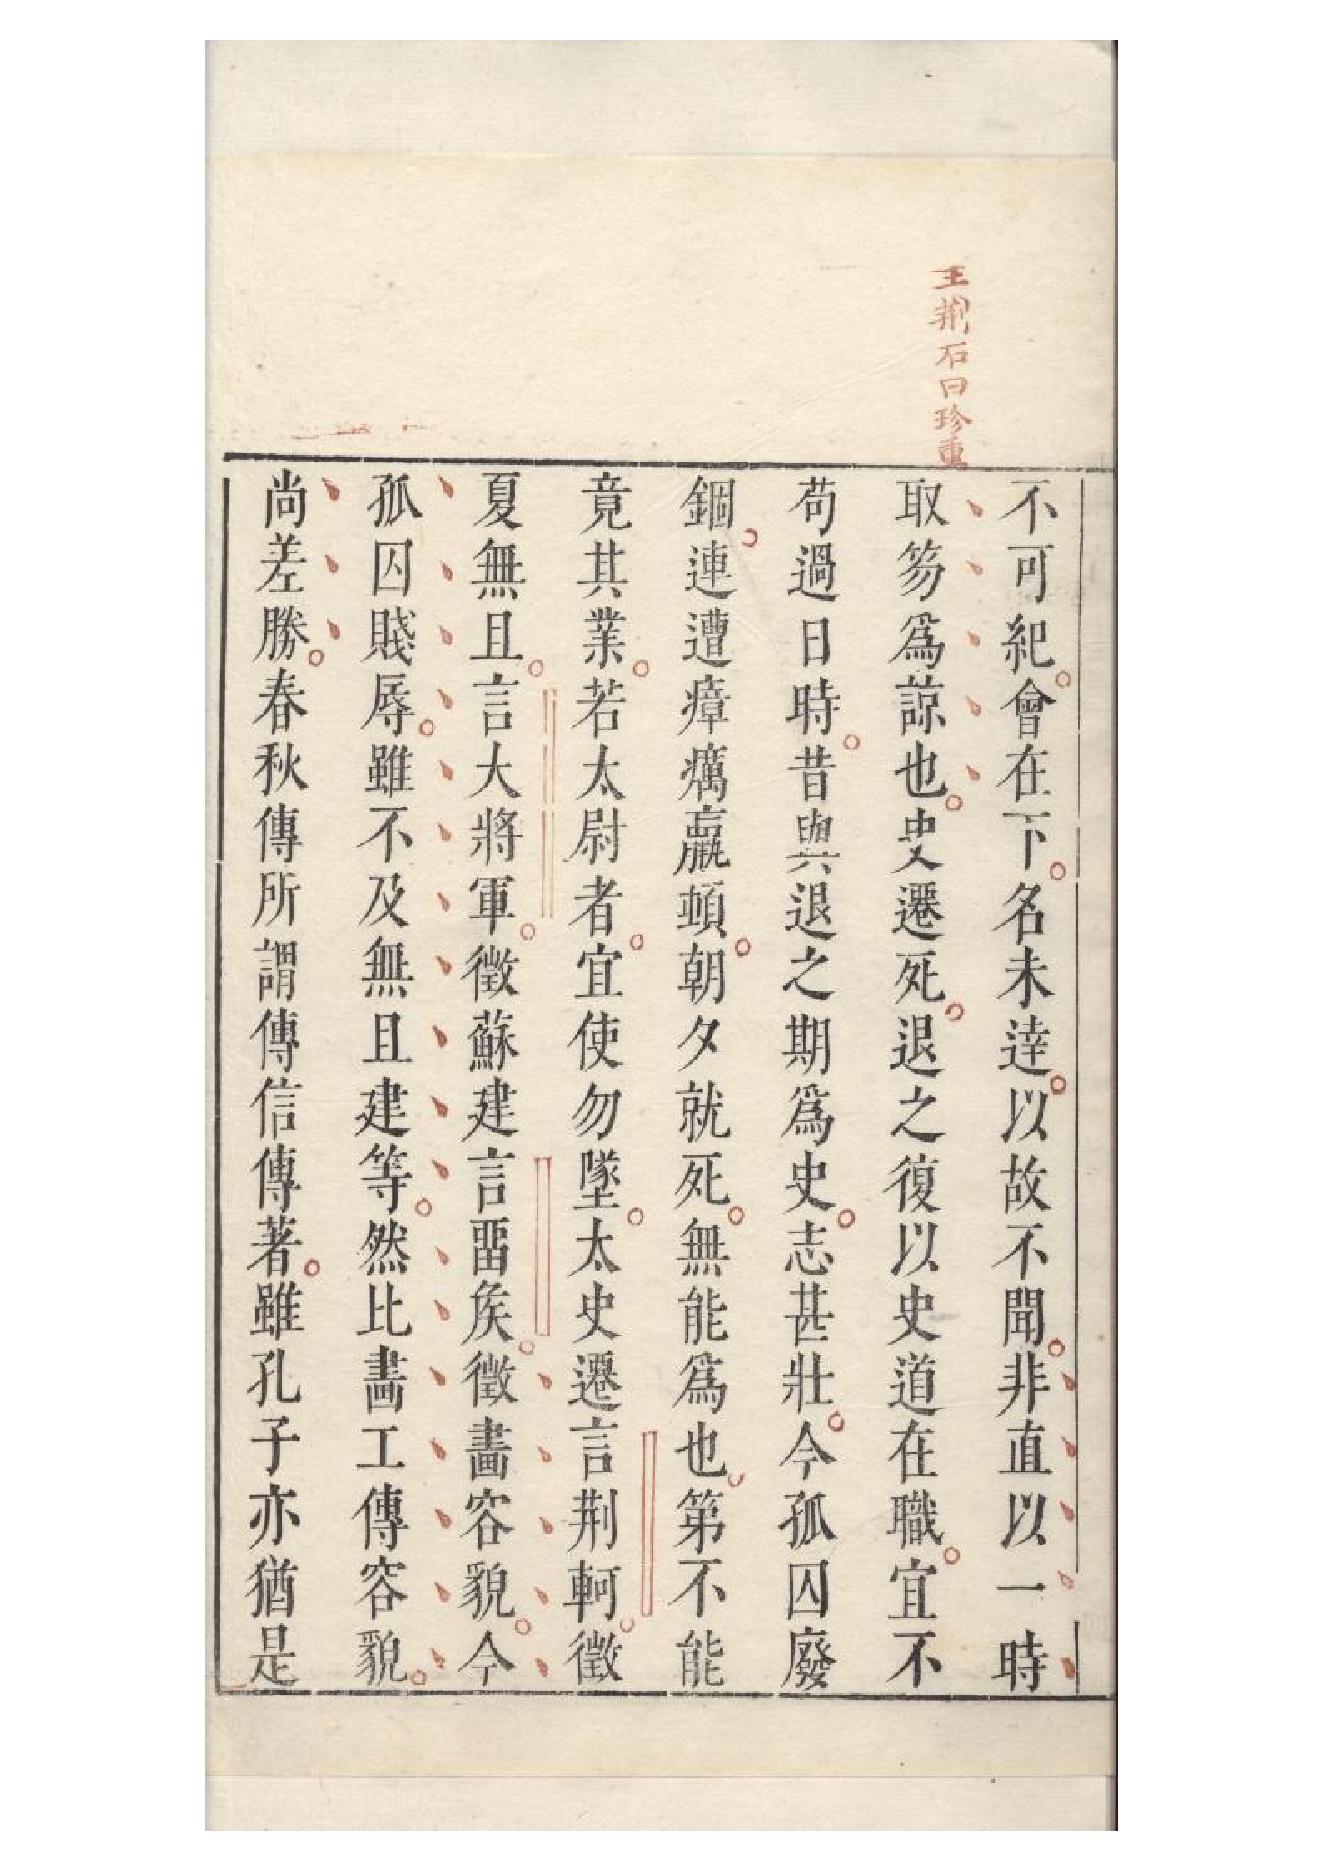 王荆石曰珍重
不可紀會在下名未達以故不聞非直以一時
取笏爲諒也史遷死退之復以史道在職宜不
苟過日時昔與退之期爲史志甚壯今孤囚廢
錮連遭瘴癘羸頓朝夕就死無能爲也第不能
竟其業若太尉者宜使勿墜太史遷言荆軻徵
夏無且言大將軍徵蘇建言畱矦徵畫容貌今
孤囚賤辱雖不及無且建等然比畫工傳容貌
尚差勝春秋傳所謂傳信傳著雖孔子亦猶是